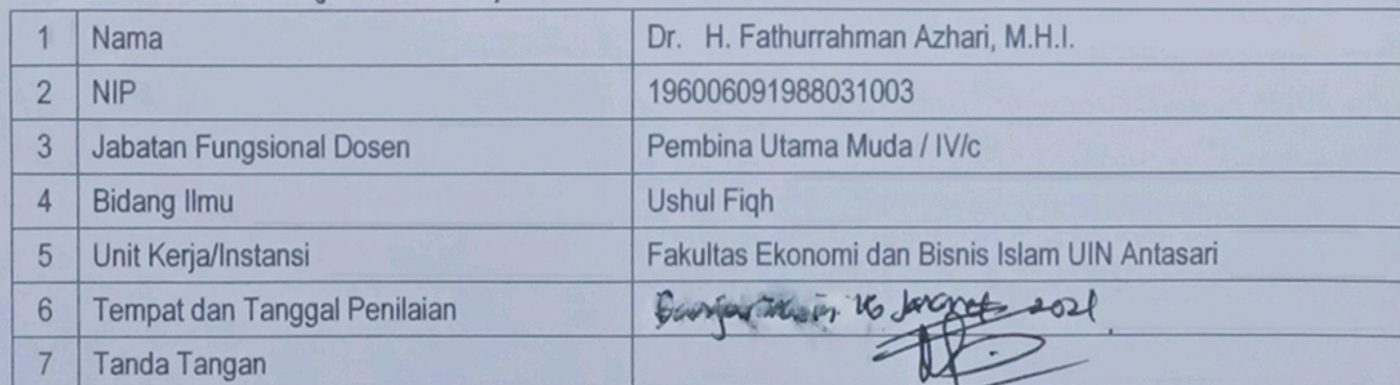 1 Nama Dr. H. Fathurrahman Azhari, M.H.I.
2 NIP 196006091988031003
3 Jabatan Fungsional Dosen Pembina Utama Muda / IV/c
4 Bidang Ilmu Ushul Fiqh
5 Unit Kerja/Instansi Fakultas Ekonomi dan Bisnis Islam UIN Antasari
6 Tempat dan Tanggal Penilaian 16 2021
7 Tanda Tangan